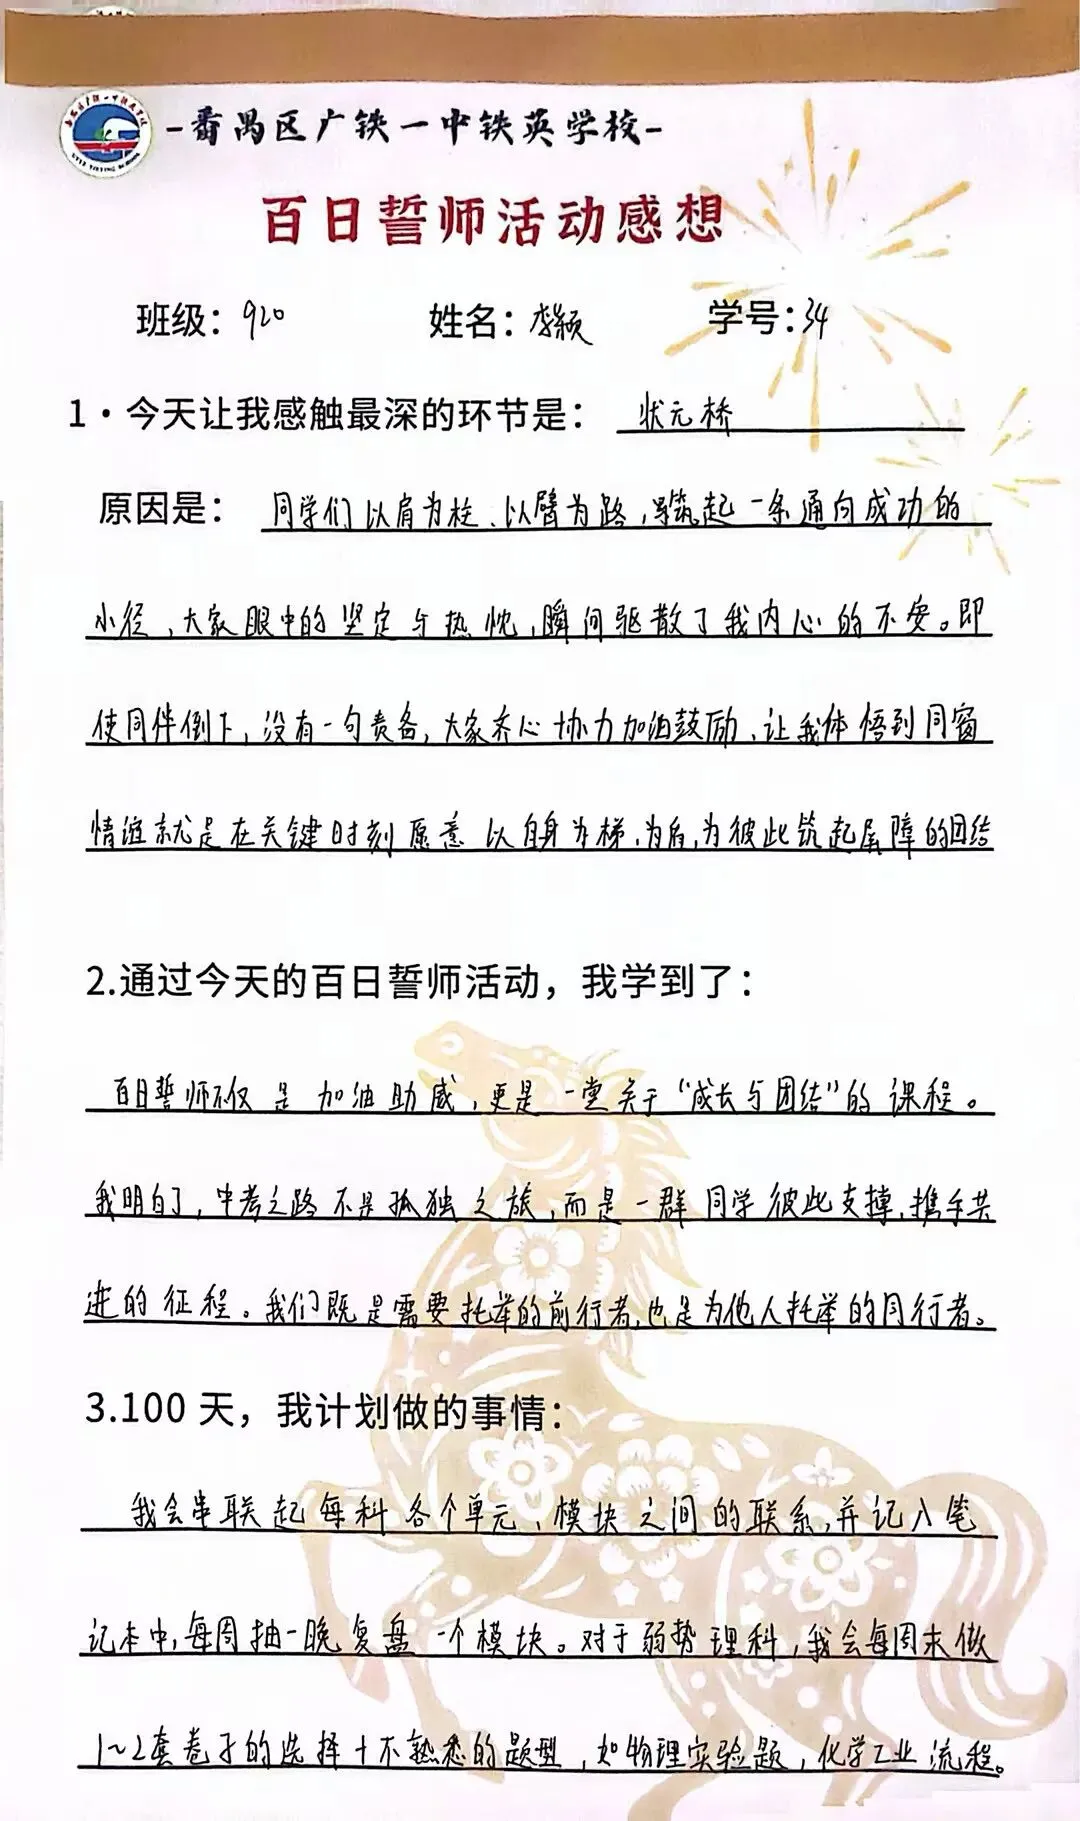 -番禺区广铁一中铁英学校-
百日誓师活动感想
班级：920 姓名：李颖 学号：34
1·今天让我感触最深的环节是： 状元桥
原因是： 同学们以肩为柱、以臂为路，筑起一条通向成功的
小径，大家眼中的坚定与热忱，瞬间驱散了我内心的不安。即
使同伴倒下，没有一句责备，大家齐心协力加油鼓励，让我体悟到同窗
情谊就是在关键时刻愿意以自身为梯，为盾，为彼此筑起屏障的团结
2.通过今天的百日誓师活动，我学到了：
百日誓师不仅是加油助威，更是一堂关于“成长与团结”的课程。
我明白了，中考之路不是孤独之旅，而是一群同学彼此支撑，携手共
进的征程。我们既是需要托举的前行者，也是为他人托举的同行者。
3.100 天，我计划做的事情：
我会串联起每科各个单元、模块之间的联系，并记入笔
记本中，每周抽一晚复盘一个模块。对于弱势理科，我会每周末做
1~2套卷子的选择+不熟悉的题型，如物理实验题，化学工业流程。